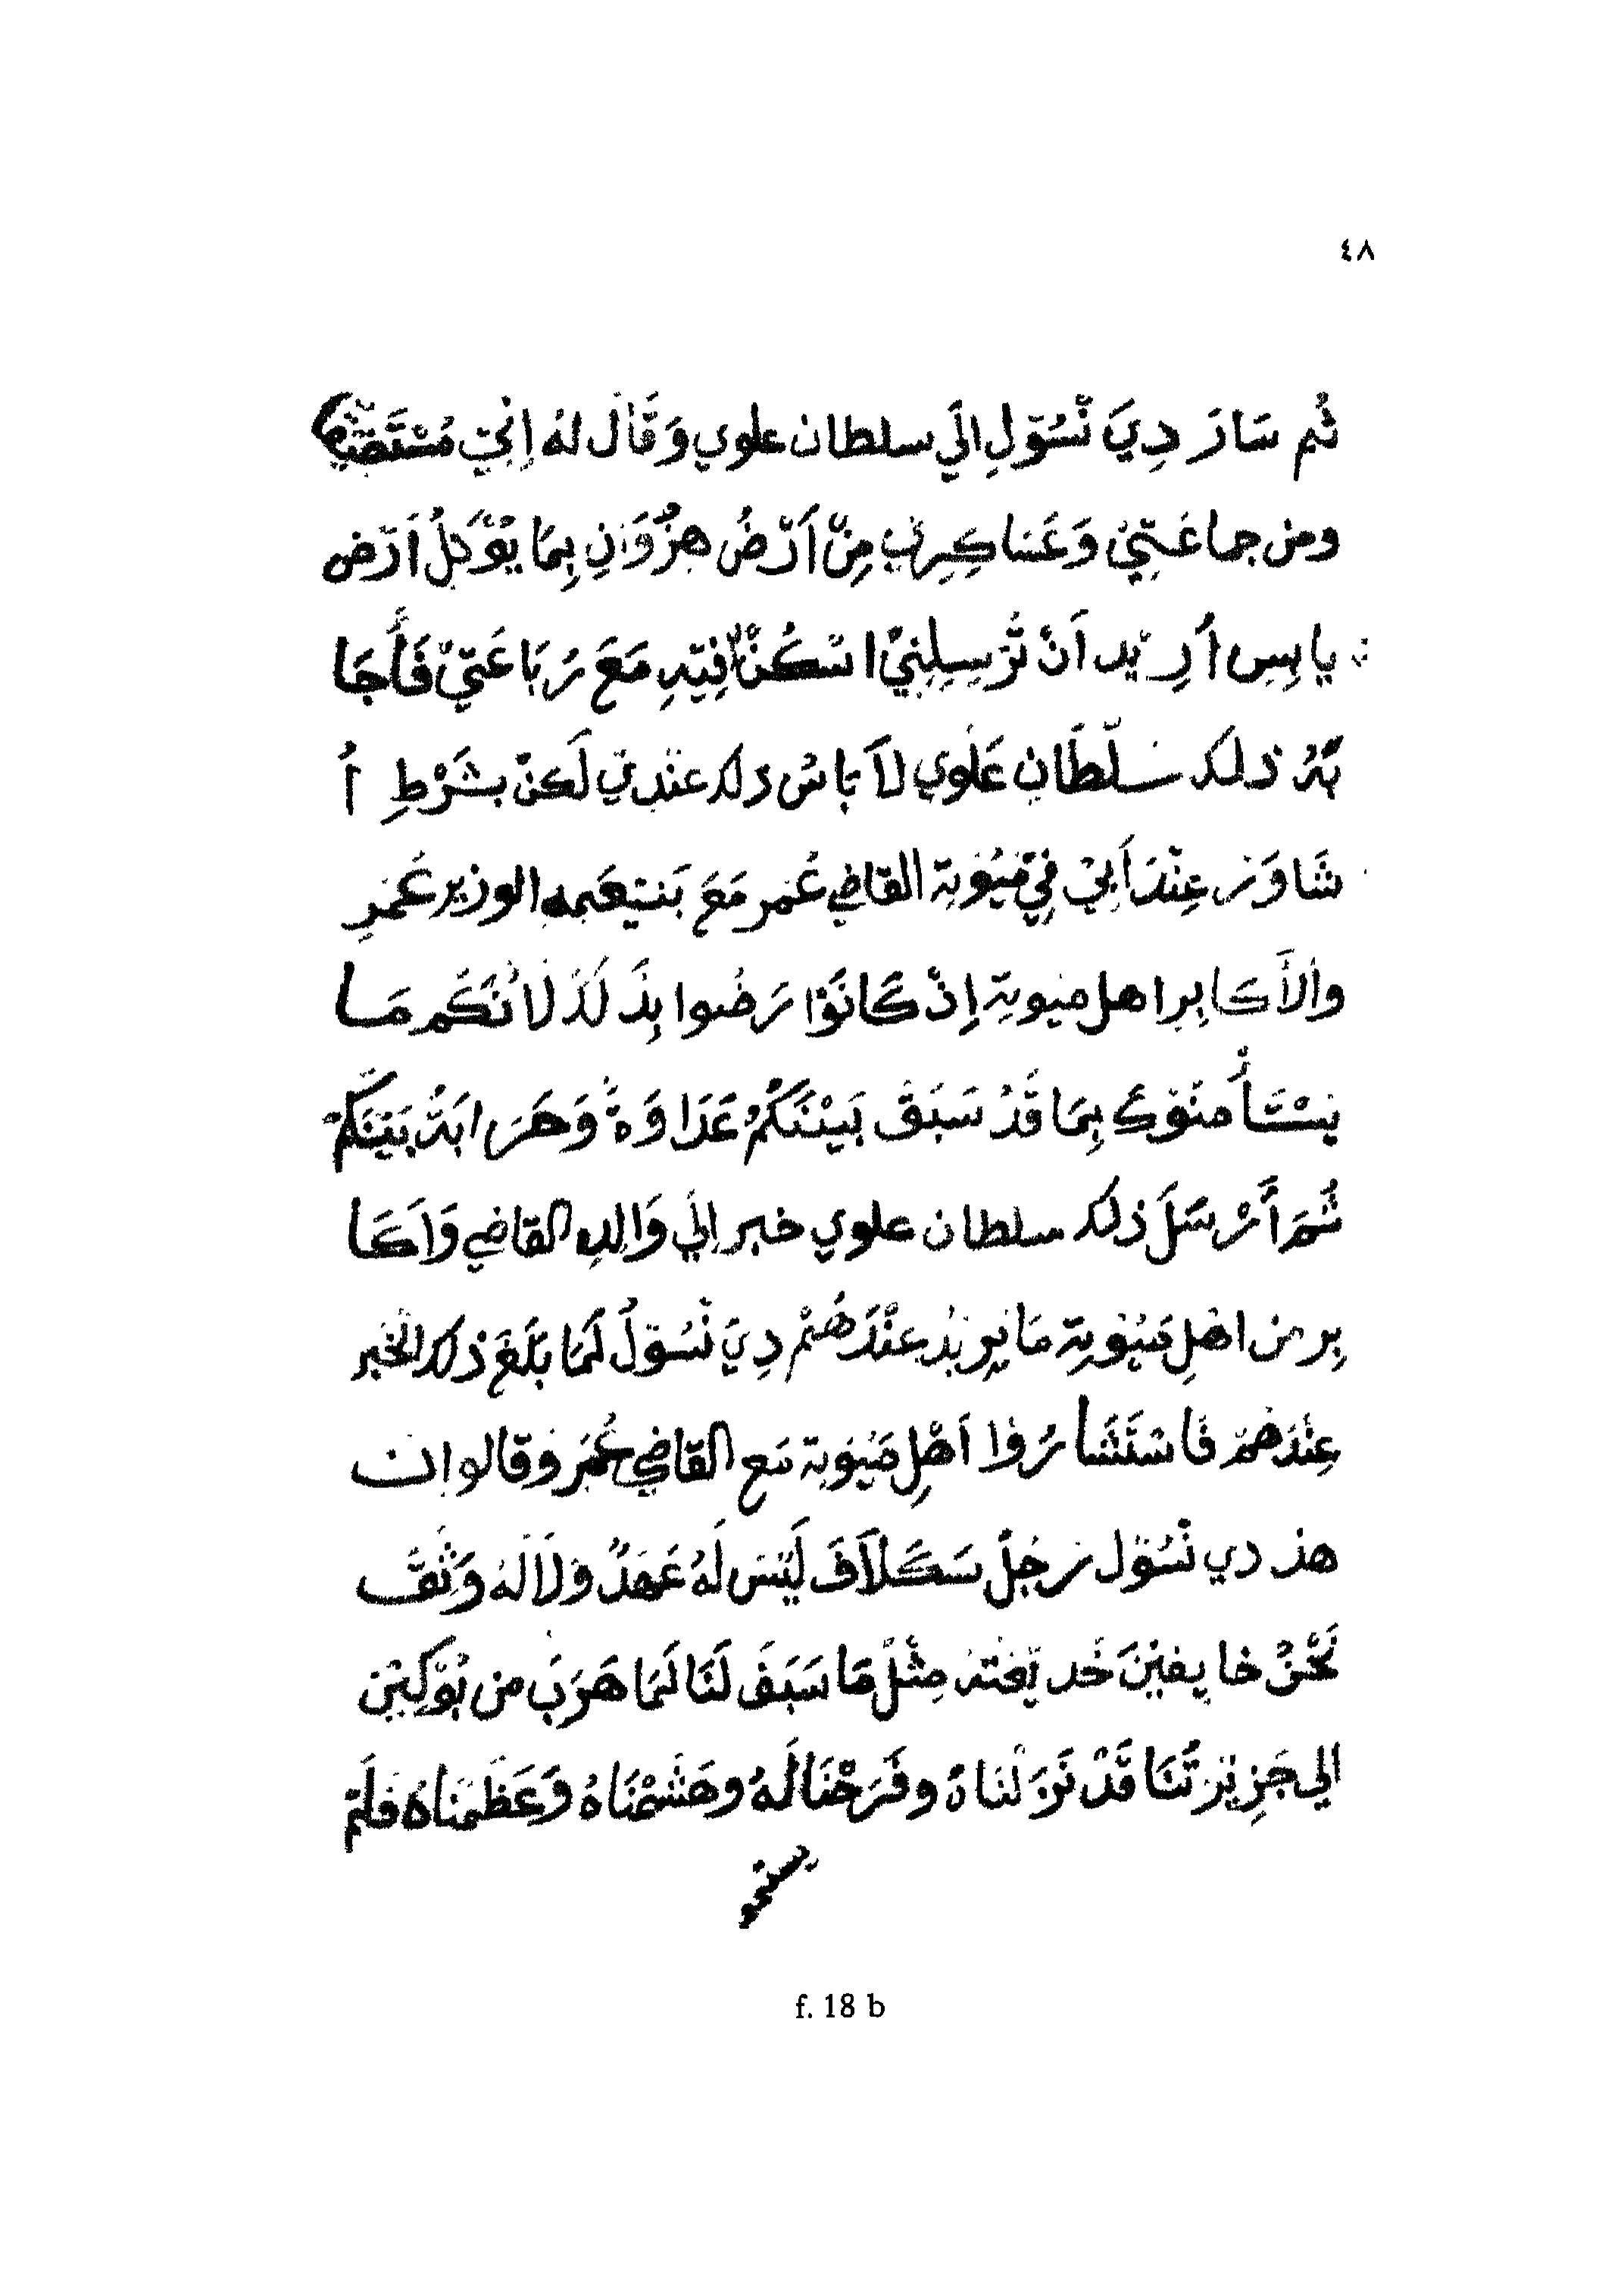 ٤٨
ثُم سَارَ دِيَ نْسُوْلِ الَي سلطان علوي وَقَالَ لهُ اِنِيْ
ومن جماعَتِيْ وَعَساكِرِي مِنْ اَرْضُ هِزُوَانِ بِمَا يُؤكِلُ اَرْض
يابِس اُرِيْد اَنْ تُرْسِلِنِيْ اسْكُنُ فِيْهِ مَعَ رَبَاعَتِيْ فَأَجَا
بَهُ ذلك سلْطَانِ عَلَوي لاَ بَاسُ ذلك عنْدِي لَكنْ بشَرْطِ اُ
شَاوَر عِنْدَ اَبِيْ فِيْ مَيُوْتِة القاضي عُمَر مَعَ بَنيعمه الوزير عُمَرِ
والأَكابِر اهل ميوتة اِنْ كَانَوْا رَضُوا بِذَلَكَ لاَنُكَم مَا
يَسْتَأْمنَوْكَ بِمَا قَدُ سَبَقَ بَيْنَكُمْ عَدَاوَةُ وَحَرَابَةُ بَيْنَكُمْ
ثُمَ أَرْسَلَ ذلك سلطان علوي خبر الَي وَالِدِه القاضي وَاَكَا
بِر من اهْلِ مَيُوْتِة مَا يُرِيْدُ عِنْدَهُمْ دِيَ نْسُوْلُ لَمَا بَلَغَ ذلك الخَبر
عِنْدَهُمْ فَاسْتَشَارُوْا اَهْلِ مَيُوَتة مَع القَاضِي عُمَرَ وَقالوا ان
هذ دي نْسُوْل رَجُلُ سَكَلاَفَ لَيْسَ لَهُ عَهَدٌ وَلاَ لَهُ وَثِقَّ
نَحْنُ خايفيْنَ خَديْعَته مِثْلُ مَا سَبَقَ لَنَا لَمَا هَرَبَ من بُوْكِيْن
الي جَزِيْرتُنَا قَدْ نَزَلْنَاهُ وفَرَحْنَا لَهُ وحَشَمْنَاهُ وَعَظَمْنَاهُ فلَمْ
f. 18 b